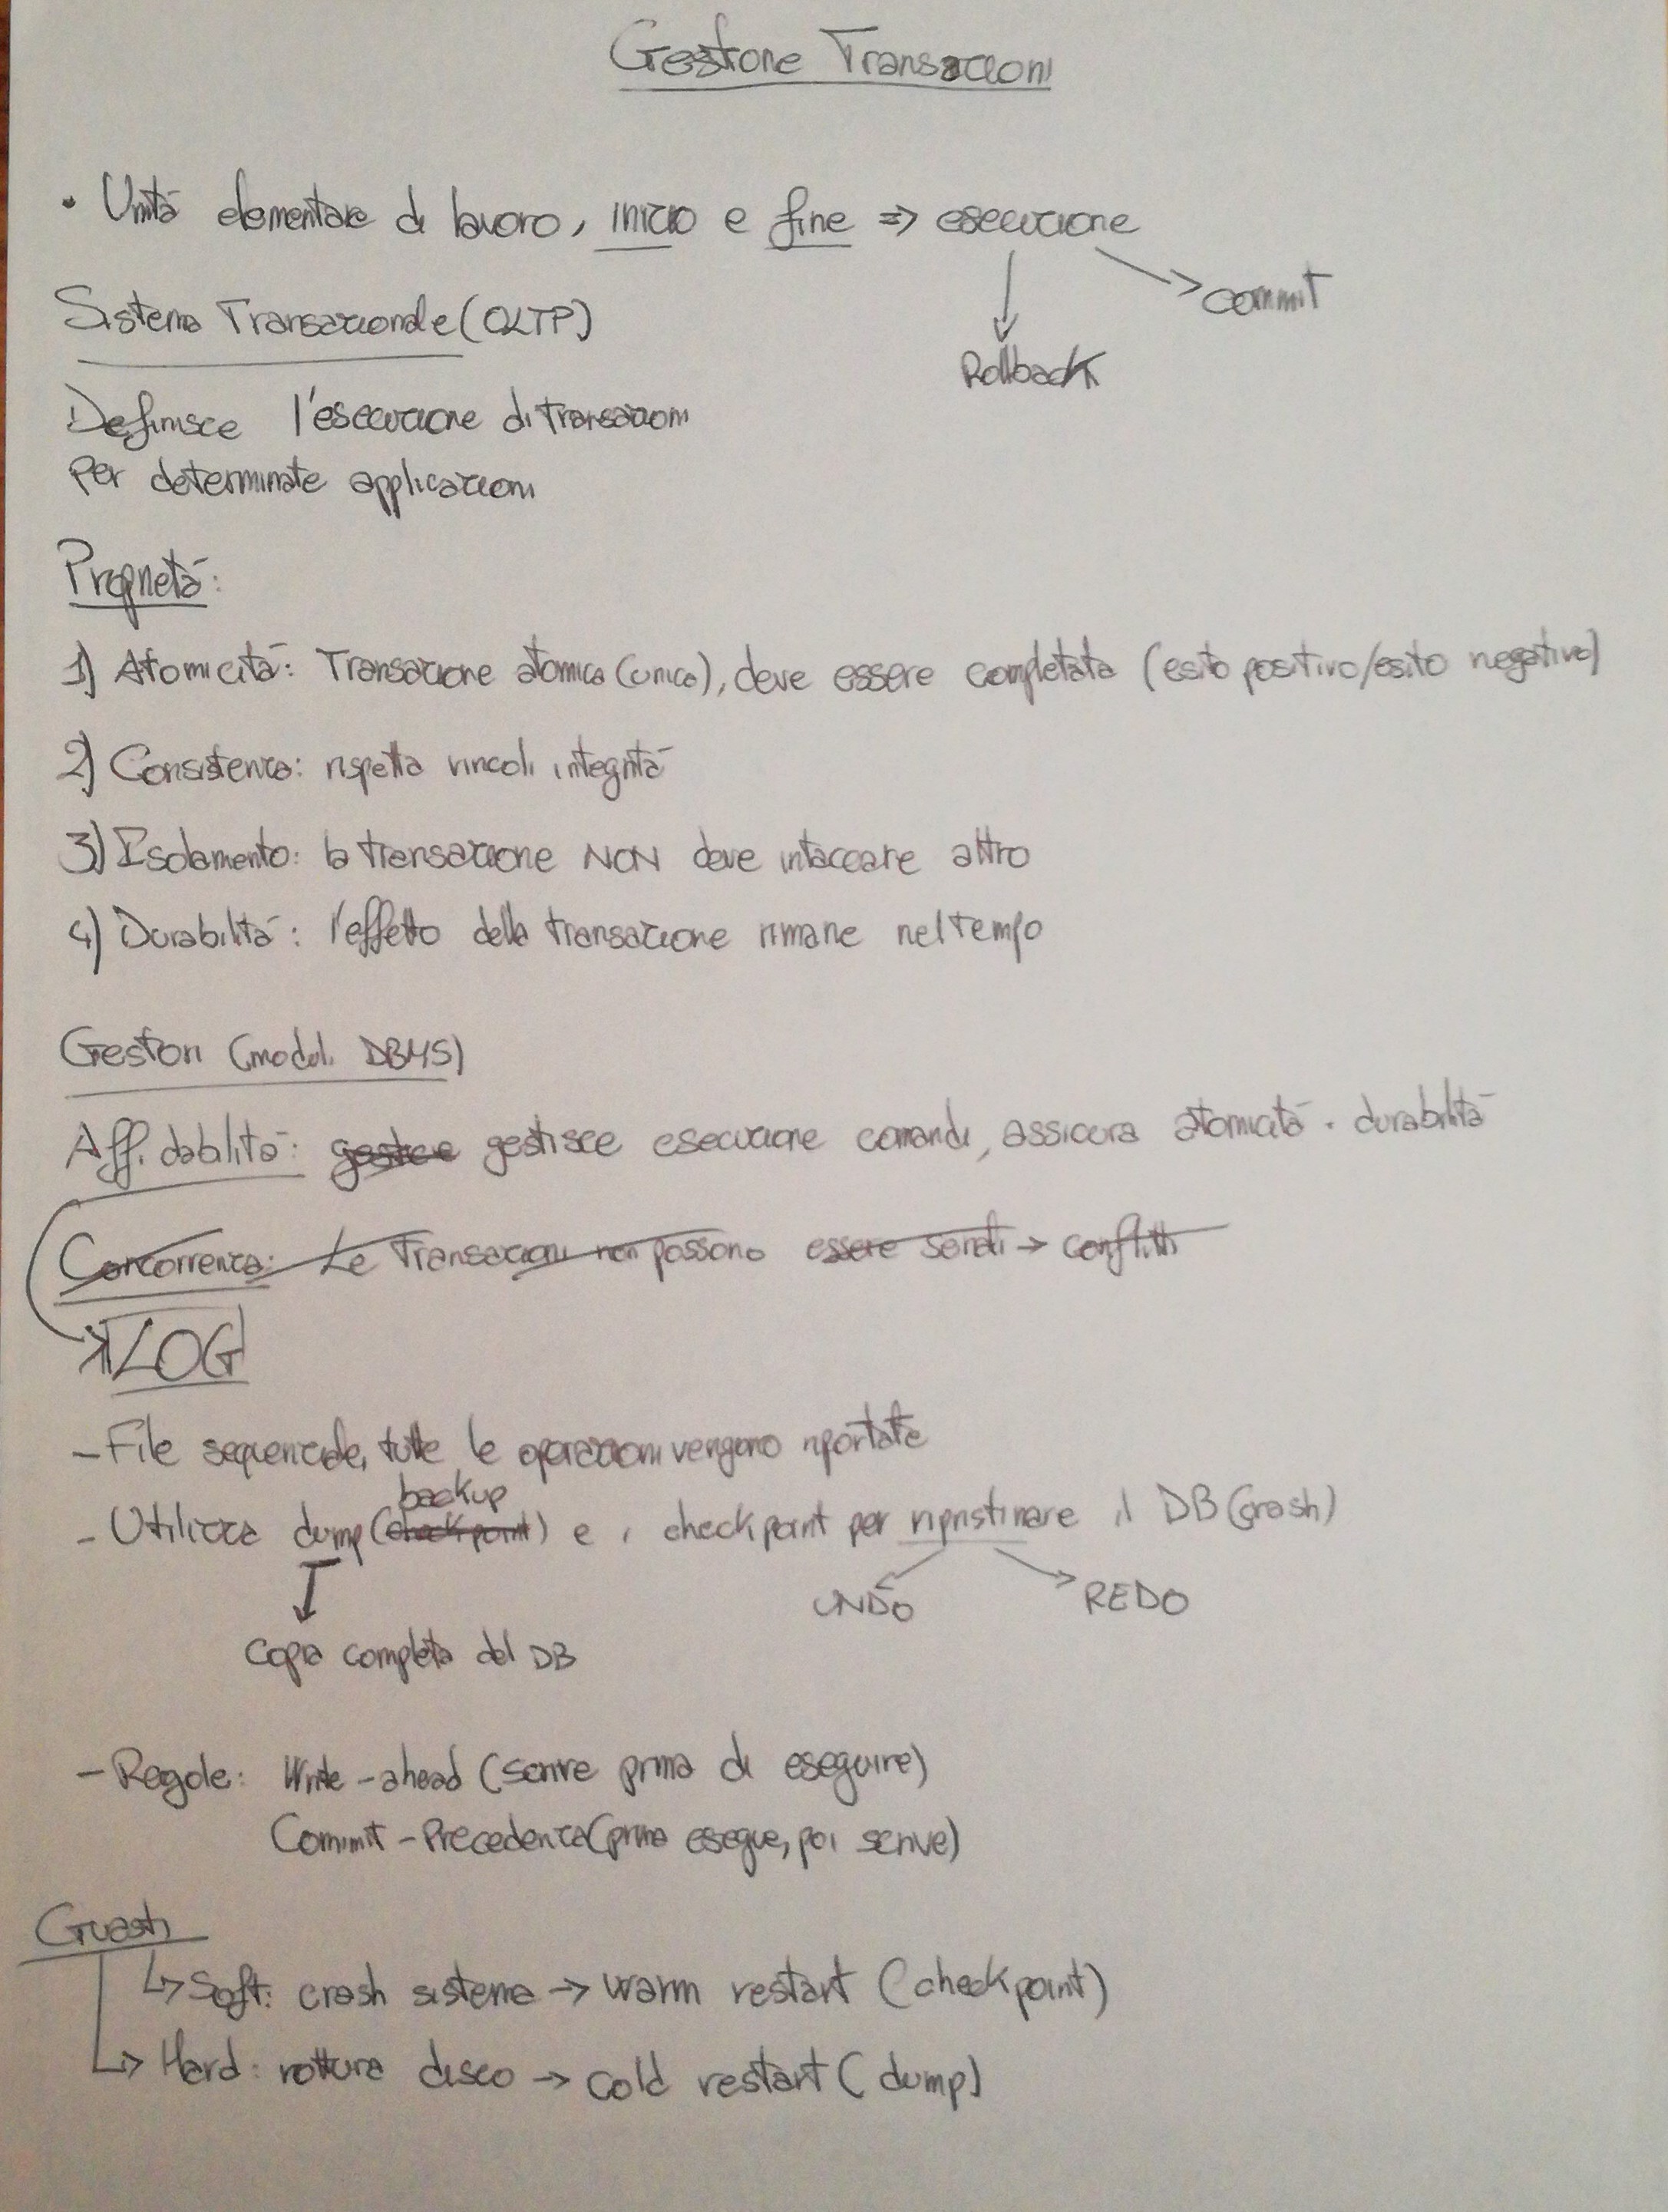 Gestione Transazioni
• Unità elementare di lavoro, inizio e fine => esecuzione
commit
Sistema Transazionale (OLTP)
Rollback
Definisce l'esecuzione di transazioni
per determinate applicazioni
Proprietà:
1) Atomicità: Transazione atomica (unica), deve essere completata (esito positivo/esito negativo)
2) Consistenza: rispetta vincoli integrità
3) Isolamento: la transazione NON deve intaccare altro
4) Durabilità: l'effetto della transazione rimane nel tempo
Gestori (moduli DBMS)
Affidabilità: gestisce esecuzione comandi, assicura atomicità - durabilità
Concorrenza: Le Transazioni non possono essere seriali → conflitti
LOG
- File sequenziale, tutte le operazioni vengono riportate
backup
- Utilizza dump (checkpoint) e i checkpoint per ripristinare il DB (crash)
UNDO REDO
Copia completa del DB
- Regole: Write-ahead (scrive prima di eseguire)
Commit-Precedenza (prima esegue, poi scrive)
Guasti
Soft: crash sistema → warm restart (checkpoint)
Hard: rottura disco → cold restart (dump)